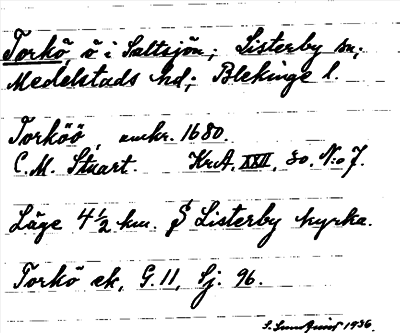 Torkö, ö i Saltsjön; Listerby sn;
Medelstads hd; Blekinge l.
Torköö, omkr. 1680.
C.M. Stuart. KrA. XXII, 30. N:o 7.
Läge 4½ km. S Listerby kyrka.
Torkö ek, G. 11, Sj. 96.
1936.